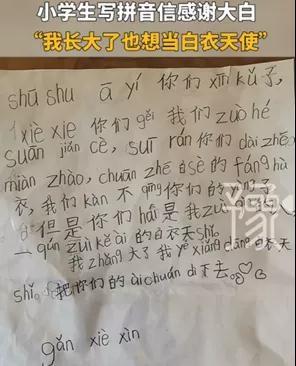 小学生写拼音信感谢大白
“我长大了也想当白衣天使”
shū shu ā yí 你们 xīn kǔ 了,
xiè xie 你们 gěi 我们 zuò hé
suān jiǎn cè, suī rán 你们 dài zhe
miàn zhào, chuān zhe 白 sè 的 fáng hù
衣, 我们 kàn 不 qīng 你们的
但是你们 hái 是我 zuì
一 qún zuì kě ài 的白衣天 shǐ。
我 zhǎng 大了我 yě xiǎng dāng 白衣天
shǐ。把你们的 ài chuán 下去。
gǎn xiè xìn
豫